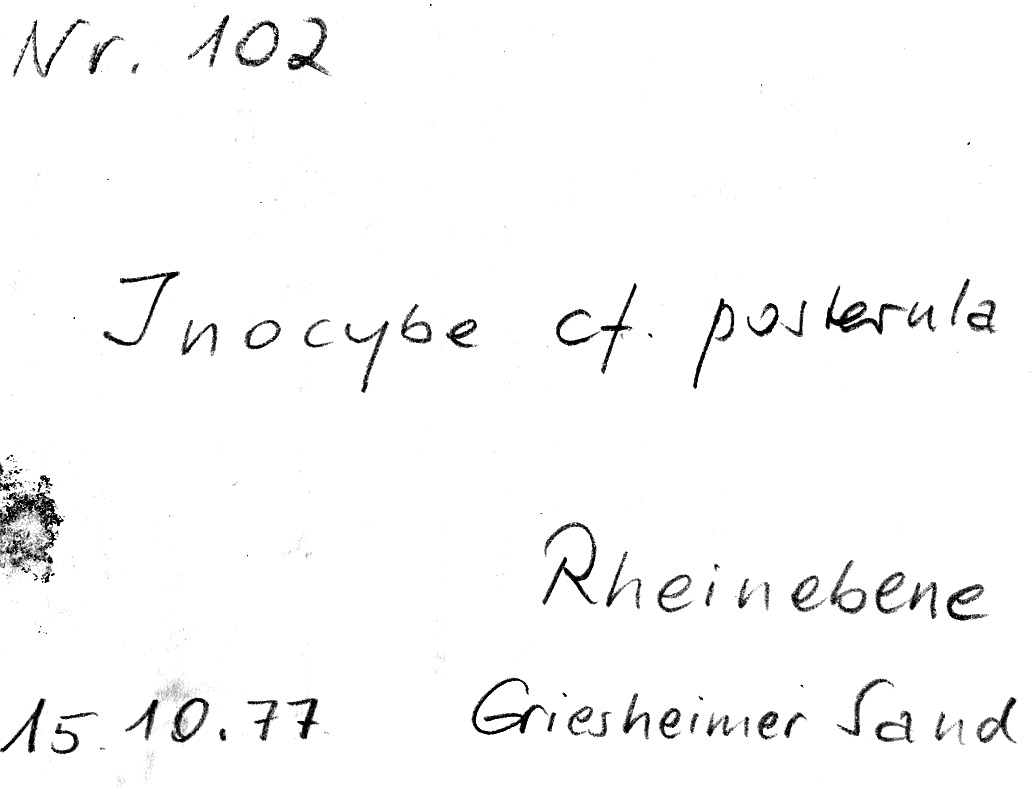 Nr. 102
Inocybe cf. posterula
Rheinebene
15.10.77 Griesheimer Sand